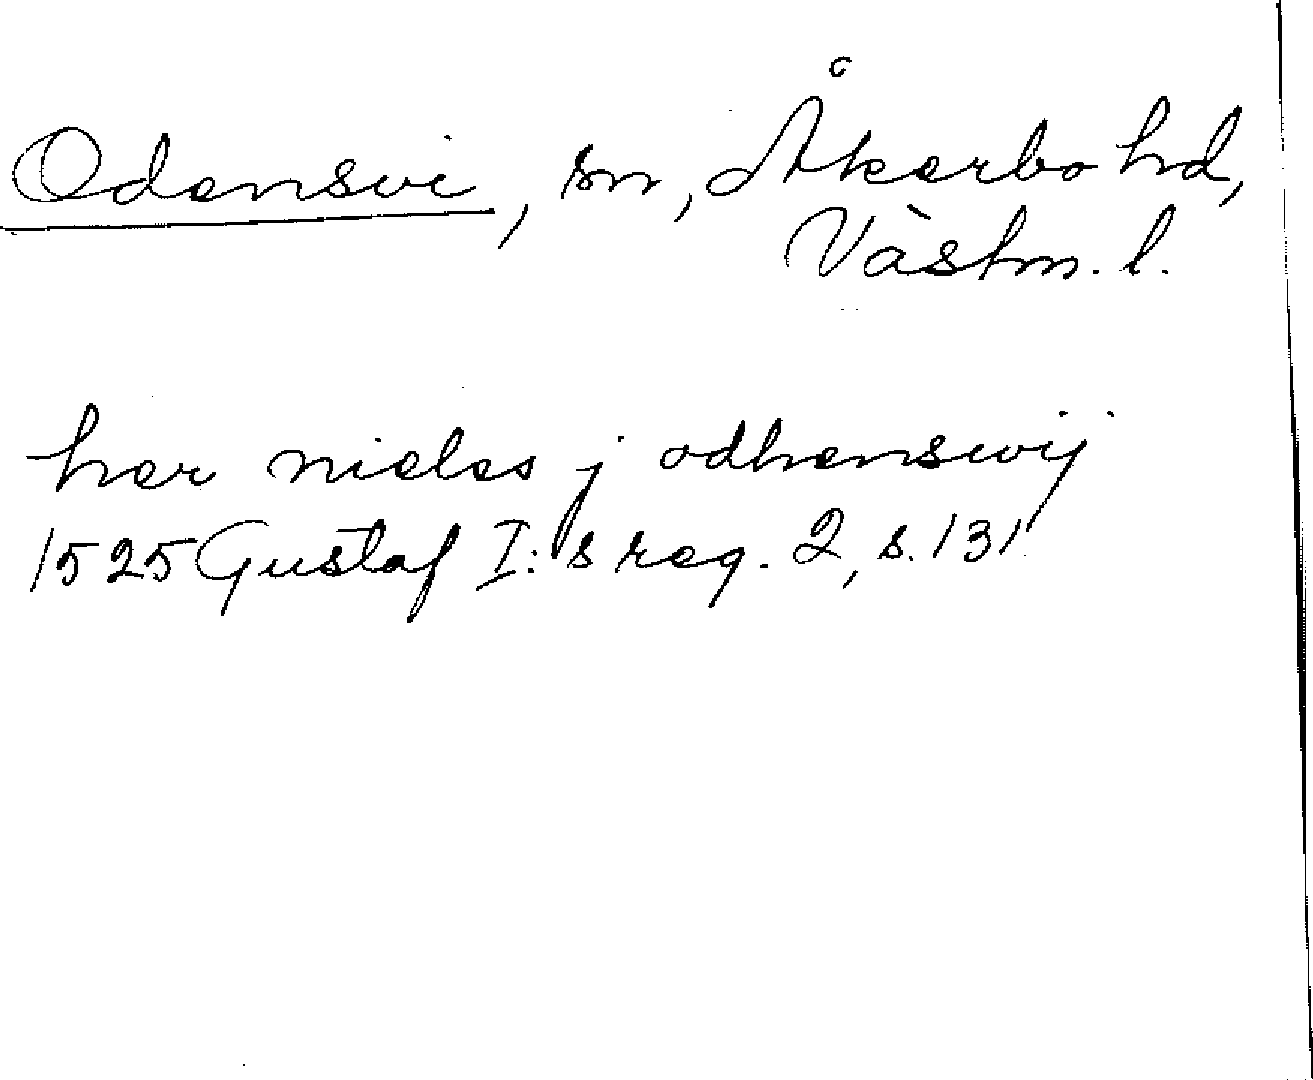 Odensvi, sn, Åkerbo hd,
Västm. l.
her nieles j odhenswij
1525 Gustaf I:s reg. 2, s. 131